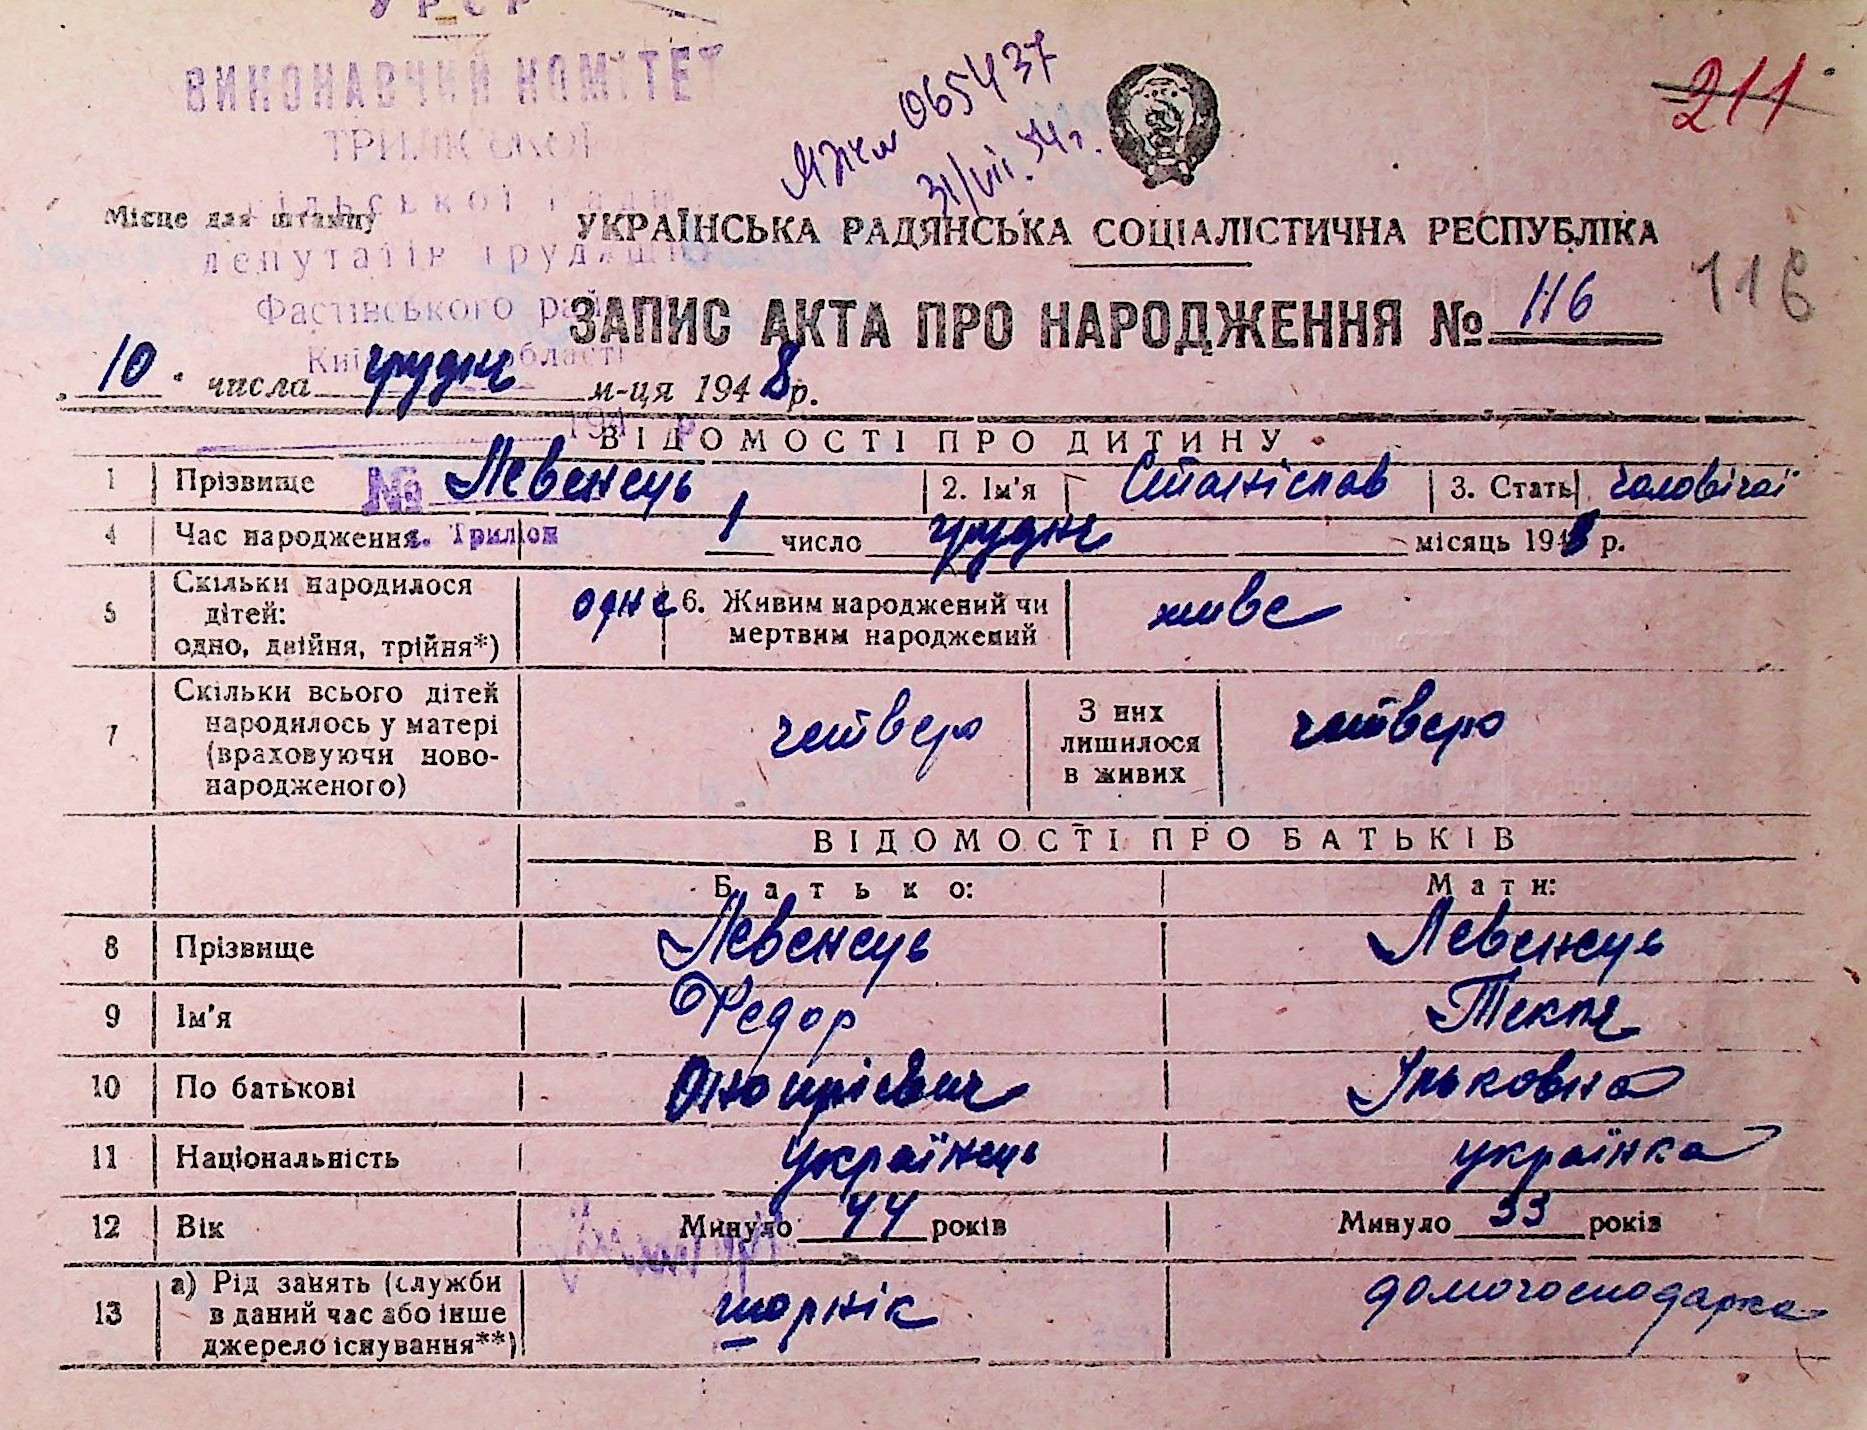 УРСР
ВИКОНАВЧИЙ КОМІТЕТ
ТРИЛІСЬКОЇ
сільської Ради
депутатів трудящих
Фастівського рай
Киї області
194 р
№
с. Триліси
065437
31/VII. 54 г.
211
116
Місце для штампу
УКРАЇНСЬКА РАДЯНСЬКА СОЦІАЛІСТИЧНА РЕСПУБЛІКА
ЗАПИС АКТА ПРО НАРОДЖЕННЯ № 116
10 числа грудня м-ця 1948 р.
ВІДОМОСТІ ПРО ДИТИНУ
1 Прізвище Левенець 2. Ім'я Станіслав 3. Стать чоловічої
4 Час народження 1 число грудня місяць 1948 р.
5 Скільки народилося дітей: одно, двійня, трійня*) одне 6. Живим народжений чи мертвим народжений живе
7 Скільки всього дітей народилось у матері (враховуючи ново-народженого) четверо З них лишилося в живих четверо
ВІДОМОСТІ ПРО БАТЬКІВ
Батько: Мати:
8 Прізвище Левенець Левенець
9 Ім'я Федор Текля
10 По батькові Онопрієвич Ільковна
11 Національність українець українка
12 Вік Минуло 44 років Минуло 33 років
13 а) Рід занять (служби в даний час або інше джерело існування**) шорнік домогосподарка